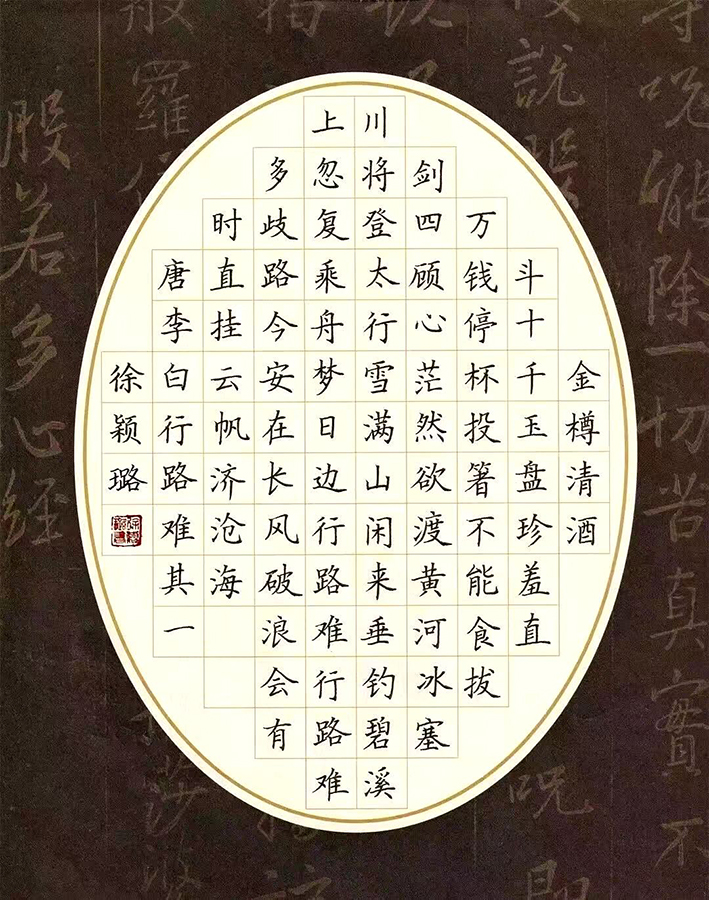 金樽清酒
斗十千玉盘珍羞直
万钱停杯投箸不能食拔
剑四顾心茫然欲渡黄河冰塞
川将登太行雪满山闲来垂钓碧溪
上忽复乘舟梦日边行路难行路难
多歧路今安在长风破浪会有
时直挂云帆济沧海
唐李白行路难其一
徐颖璐
咒能除一切苦真實不
般若多心经